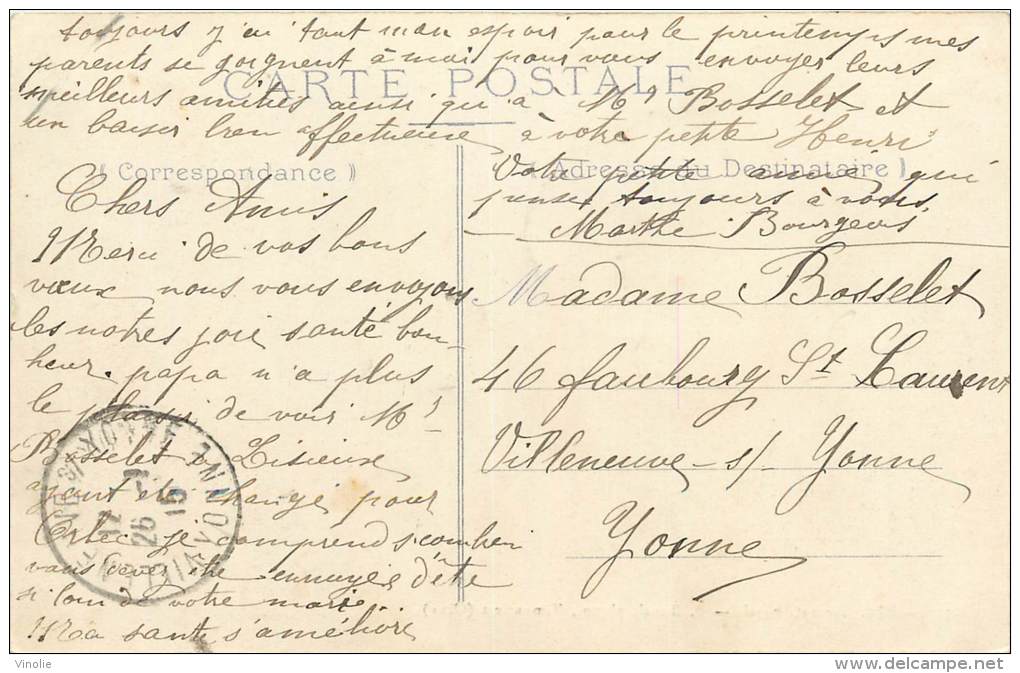 CARTE POSTALE
(( Correspondance ))
(( Adresse du Destinataire ))
Chers Amis
Merci de vos bons
vœux nous vous envoyons
les notres joie santé bon-
heur. papa n'a plus
le plaisir de voir Mr
Bosselet Lisieux
ayant été changé pour
je comprends combien
vous devez être ennuyée d'être
si loin de votre mari.
Ma santé s'améliore
toujours j'ai tout mon espoir pour le printemps mes
parents se joignent à moi pour vous envoyer leurs
meilleurs amitiés ainsi qu'à Mr Bosselet et
un baiser bien affectueux à votre petite Henri
Votre petite amie qui
pense toujours à vous,
Marthe Bourgeois
Madame Bosselet
46 faubourg St Laurent
Villeneuve-s/- Yonne
Yonne
VILLENEUVE S/ YONNE YONNE
26 -1
15
Vinolie
delcampe.net